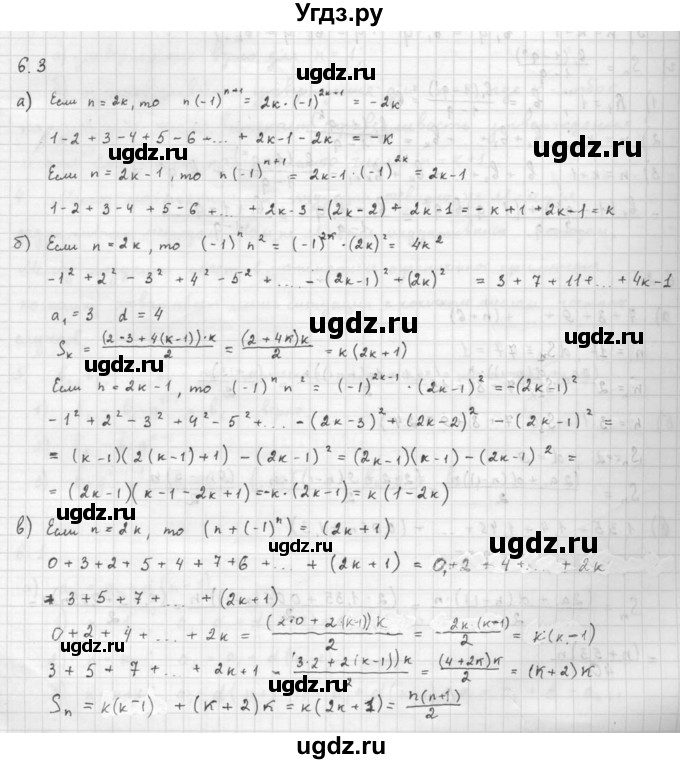 Угдз.ру
ugdz.ru
6.3
а) Если n = 2k, то n(-1)^(n+1) = 2k·(-1)^(2k+1) = -2k
ugdz.ru
1-2+3-4+5-6+...+2k-1-2k = -k
ugdz.ru
Если n = 2k-1, то n(-1)^(n+1) = 2k-1·(-1)^(2k) = 2k-1
1-2+3-4+5-6+...+2k-3-(2k-2)+2k-1 = -k+1+2k-1 = k
ugdz.ru
б) Если n = 2k, то (-1)^n n^2 = (-1)^(2k)·(2k)^2 = 4k^2
-1^2+2^2-3^2+4^2-5^2+...-(2k-1)^2+(2k)^2 = 3+7+11+...+4k-1
ugdz.ru
a_1 = 3 d = 4
ugdz.ru
S_k = (2·3+4(k-1))·k/2 = (2+4k)k/2 = k(2k+1)
Если n = 2k-1, то (-1)^n n^2 = (-1)^(2k-1)·(2k-1)^2 = -(2k-1)^2
ugdz.ru
-1^2+2^2-3^2+4^2-5^2+...-(2k-3)^2+(2k-2)^2-(2k-1)^2 =
= (k-1)(2(k-1)+1)-(2k-1)^2 = (2k-1)(k-1)-(2k-1)^2 =
= (2k-1)(k-1-2k+1) = -k·(2k-1) = k(1-2k)
ugdz.ru
в) Если n = 2k, то (n+(-1)^n) = (2k+1)
ugdz.ru
ugdz.ru
0+3+2+5+4+7+6+...+(2k+1) = 0+2+4+...+2k
+3+5+7+...+(2k+1)
ugdz.ru
0+2+4+...+2k = (2·0+2(k-1))k/2 = 2k·(k-1)/2 = k(k-1)
ugdz.ru
3+5+7+...+2k+1 = (3·2+2(k-1))k/2 = (4+2k)k/2 = (k+2)k
ugdz.ru
S_n = k(k-1)+(k+2)k = k(2k+1) = n(n+1)/2
ugdz.ru
ugdz.ru